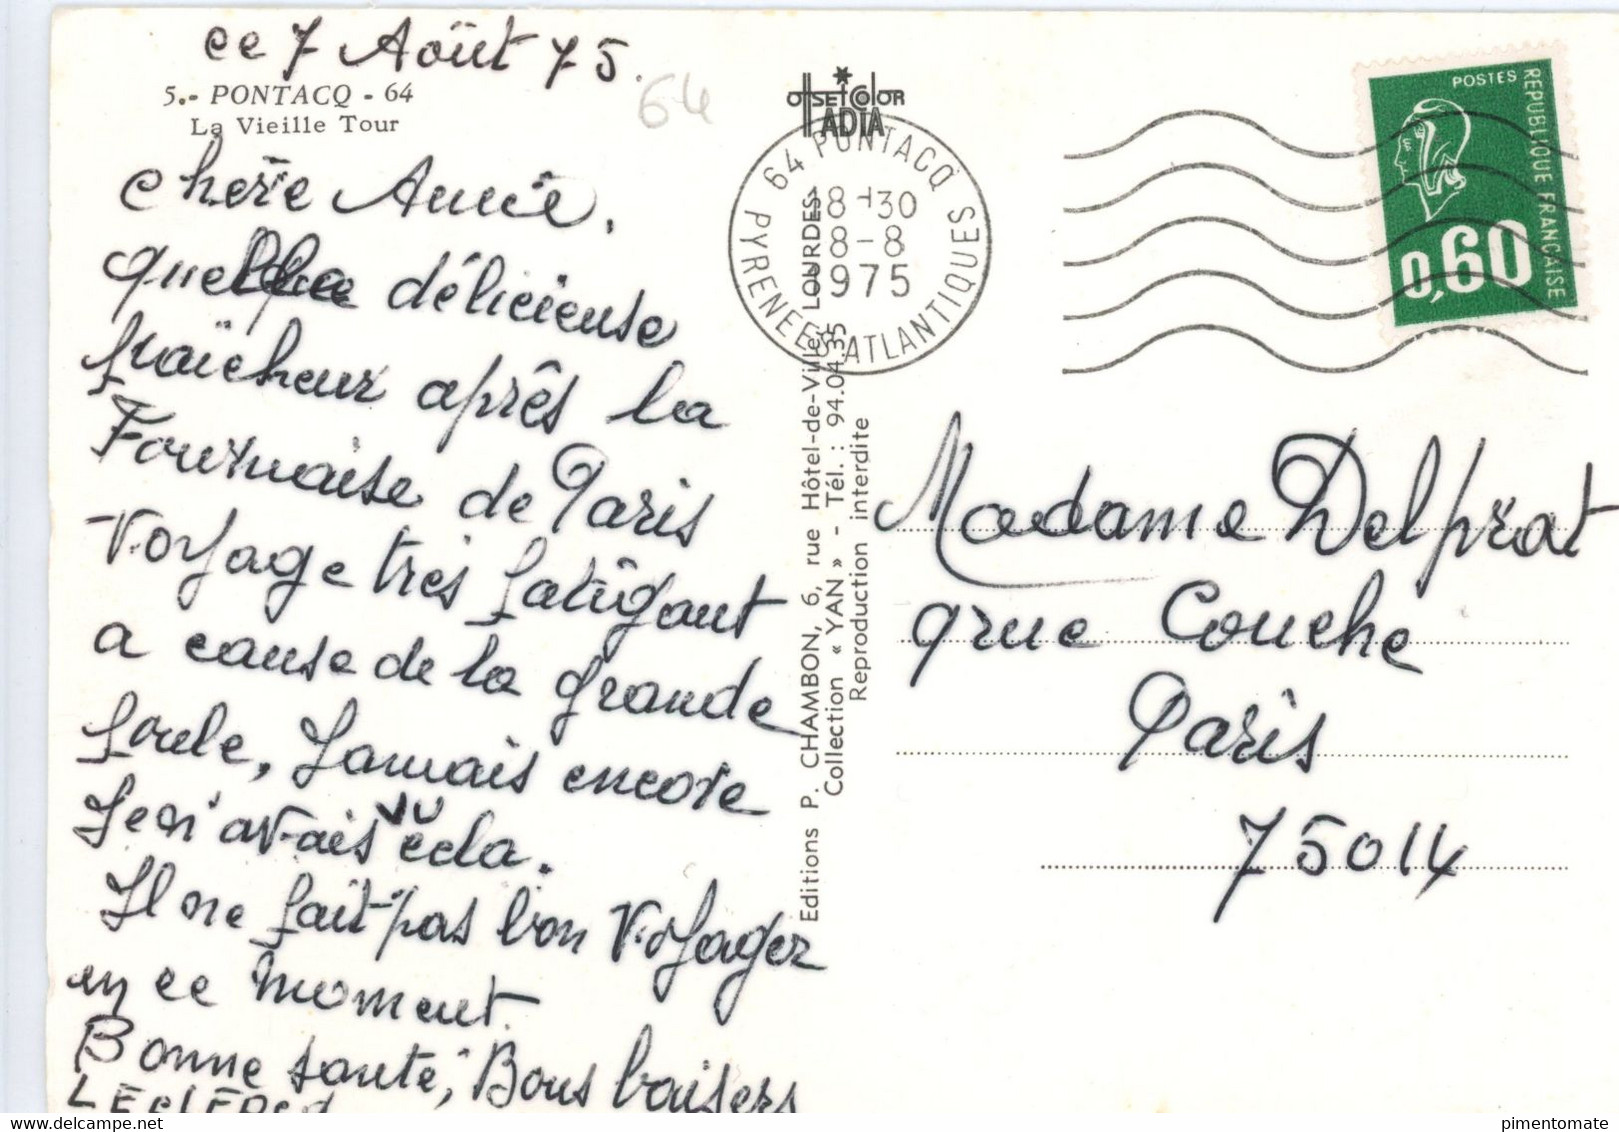 ce 7 Août 75.
64
5.- PONTACQ - 64
La Vieille Tour
Chère Année.
quelle délicieuse
fraîcheur après la
Fournaise de Paris
Voyage très fatigant
a cause de la grande
foule, Jamais encore
Je n'avais vu cela.
Il ne fait pas bon Voyager
en ce moment.
Bonne santé, Bons baisers
OFFSET COLOR
ADIA
64 PONTACQ
PYRENEES ATLANTIQUES
18-30
8-8
1975
Editions P. CHAMBON, 6, rue Hôtel-de-Ville, LOURDES
Collection « YAN » - Tél. : 94.04.35
Reproduction interdite
POSTES
REPUBLIQUE FRANCAISE
0,60
Madame Delprat
9 rue Couche
Paris
75014
pimentomate